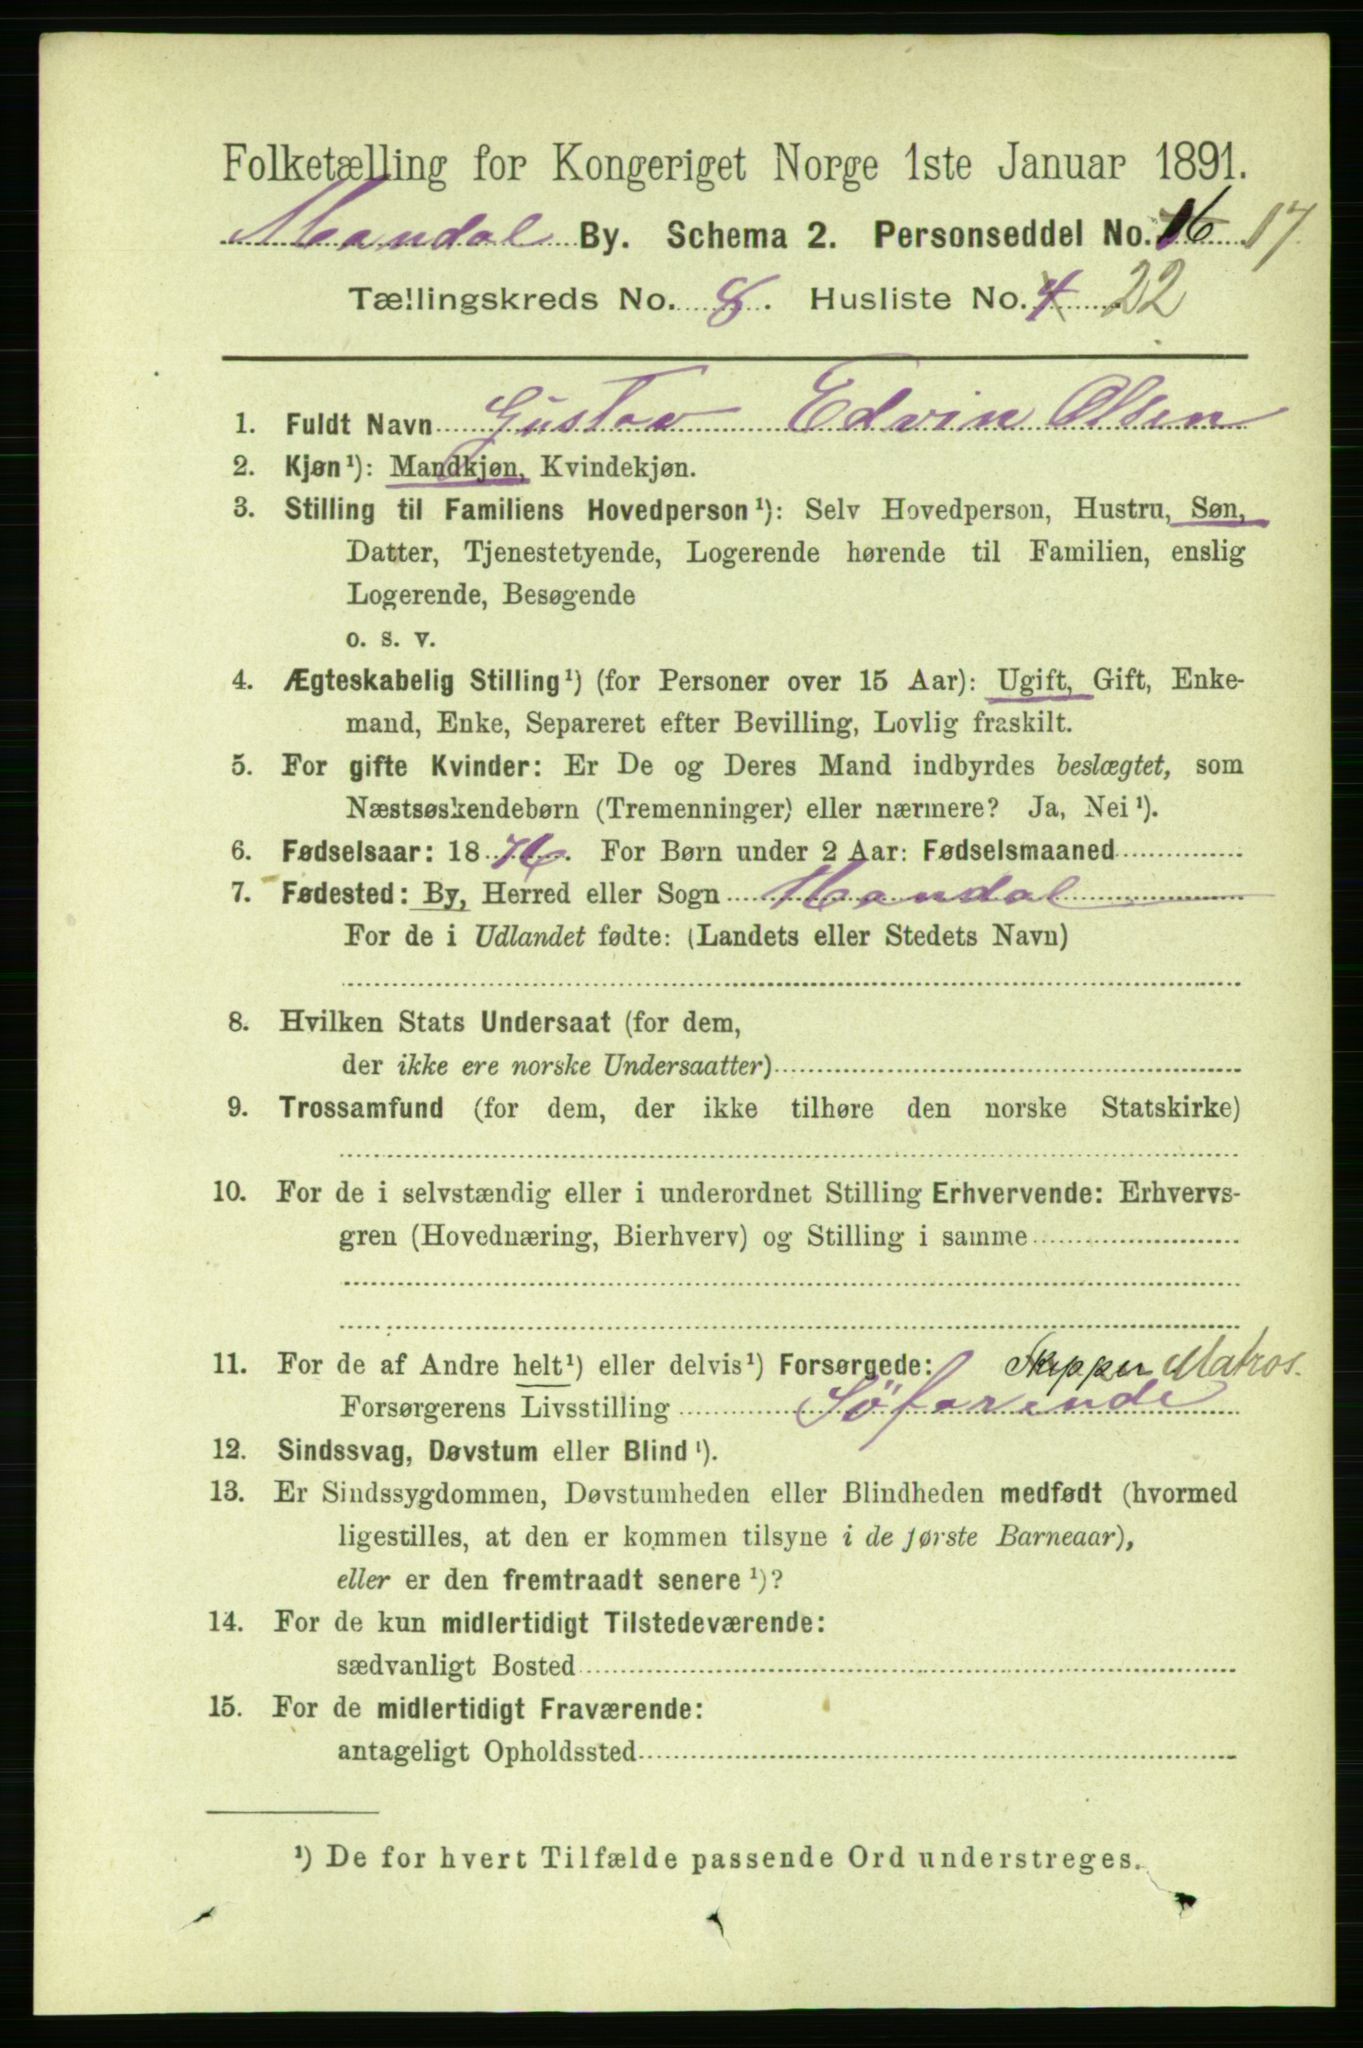 Folketælling for Kongeriget Norge 1ste Januar 1891.
Mandal By. Schema 2. Personseddel No. 16 17
Tællingskreds No. 8. Husliste No. 4 22
1. Fuldt Navn Gustav Edvin Olsen
2. Kjøn¹): Mandkjøn, Kvindekjøn.
3. Stilling til Familiens Hovedperson¹): Selv Hovedperson, Hustru, Søn,
Datter, Tjenestetyende, Logerende hørende til Familien, enslig
Logerende, Besøgende
o. s. v.
4. Ægteskabelig Stilling¹) (for Personer over 15 Aar): Ugift, Gift, Enke-
mand, Enke, Separeret efter Bevilling, Lovlig fraskilt.
5. For gifte Kvinder: Er De og Deres Mand indbyrdes beslægtet, som
Næstsøskendebørn (Tremenninger) eller nærmere? Ja, Nei¹).
6. Fødselsaar: 1876. For Børn under 2 Aar: Fødselsmaaned
7. Fødested: By, Herred eller Sogn Mandal
For de i Udlandet fødte: (Landets eller Stedets Navn)
8. Hvilken Stats Undersaat (for dem,
der ikke ere norske Undersaatter)
9. Trossamfund (for dem, der ikke tilhøre den norske Statskirke)
10. For de i selvstændig eller i underordnet Stilling Erhvervende: Erhvervs-
gren (Hovednæring, Bierhverv) og Stilling i samme
11. For de af Andre helt¹) eller delvis¹) Forsørgede: Skipper Matros.
Forsørgerens Livsstilling Söfarende
12. Sindssvag, Døvstum eller Blind¹).
13. Er Sindssygdommen, Døvstumheden eller Blindheden medfødt (hvormed
ligestilles, at den er kommen tilsyne i de første Barneaar),
eller er den fremtraadt senere¹)?
14. For de kun midlertidigt Tilstedeværende:
sædvanligt Bosted
15. For de midlertidigt Fraværende:
antageligt Opholdssted
¹) De for hvert Tilfælde passende Ord understreges.